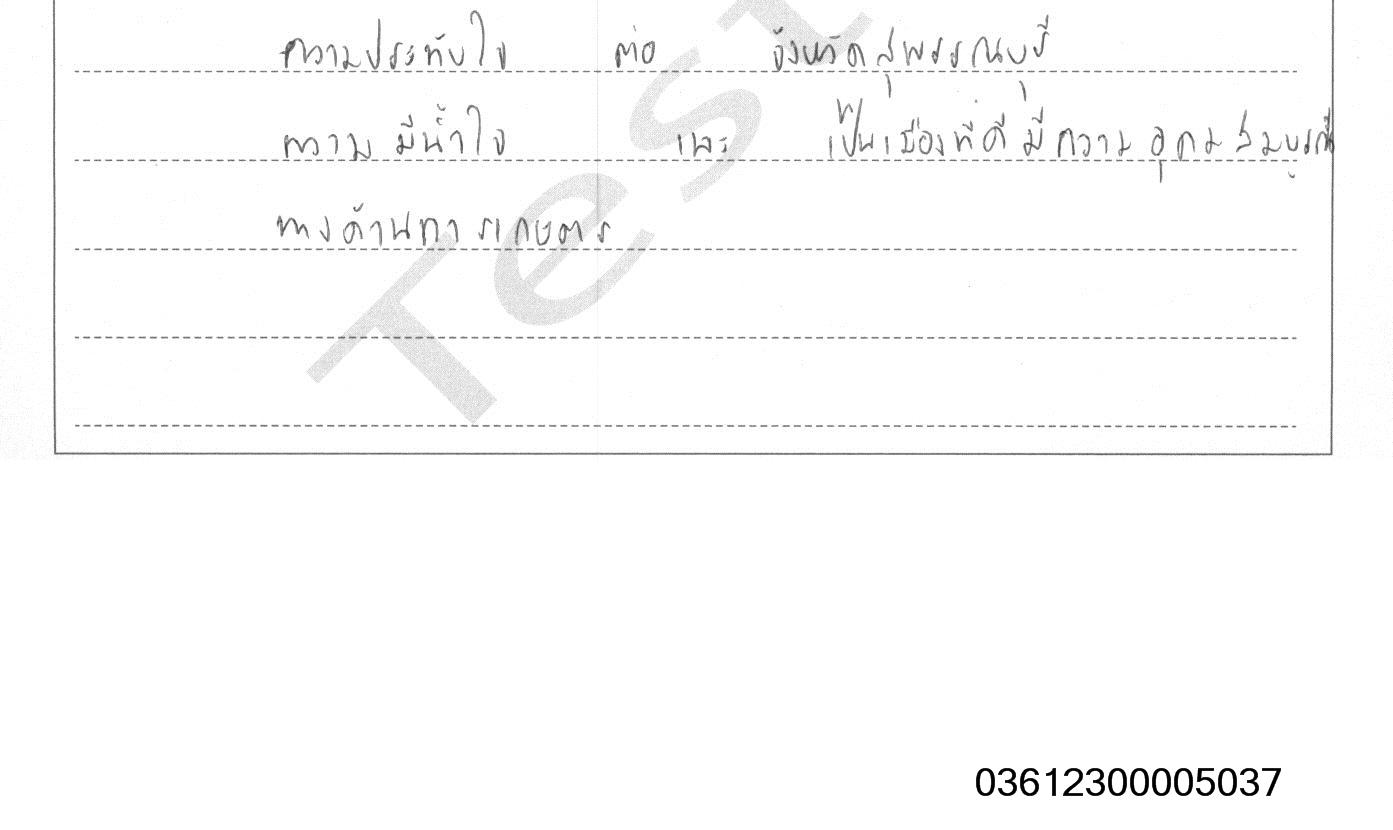 ความประทับใจ ต่อ จังหวัดสุพรรณบุรี
ความ มีน้ำใจ และ เป็นเมืองที่ดี มี ความ อุดม สมบูรณ์
ทางด้านการเกษตร
Test
03612300005037